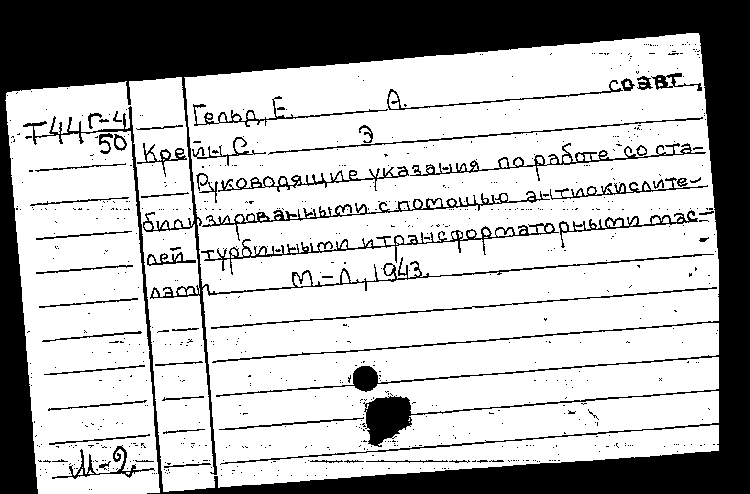 Гельд, Е. А. соавт.
Т44 Г-4
50
Крейн, С. Э
Руководящие указания по работе со ста-
билизированными с помощью антиокислите-
лей турбинными и трансформаторными мас-
лами. М.-Л., 1943.
М-2